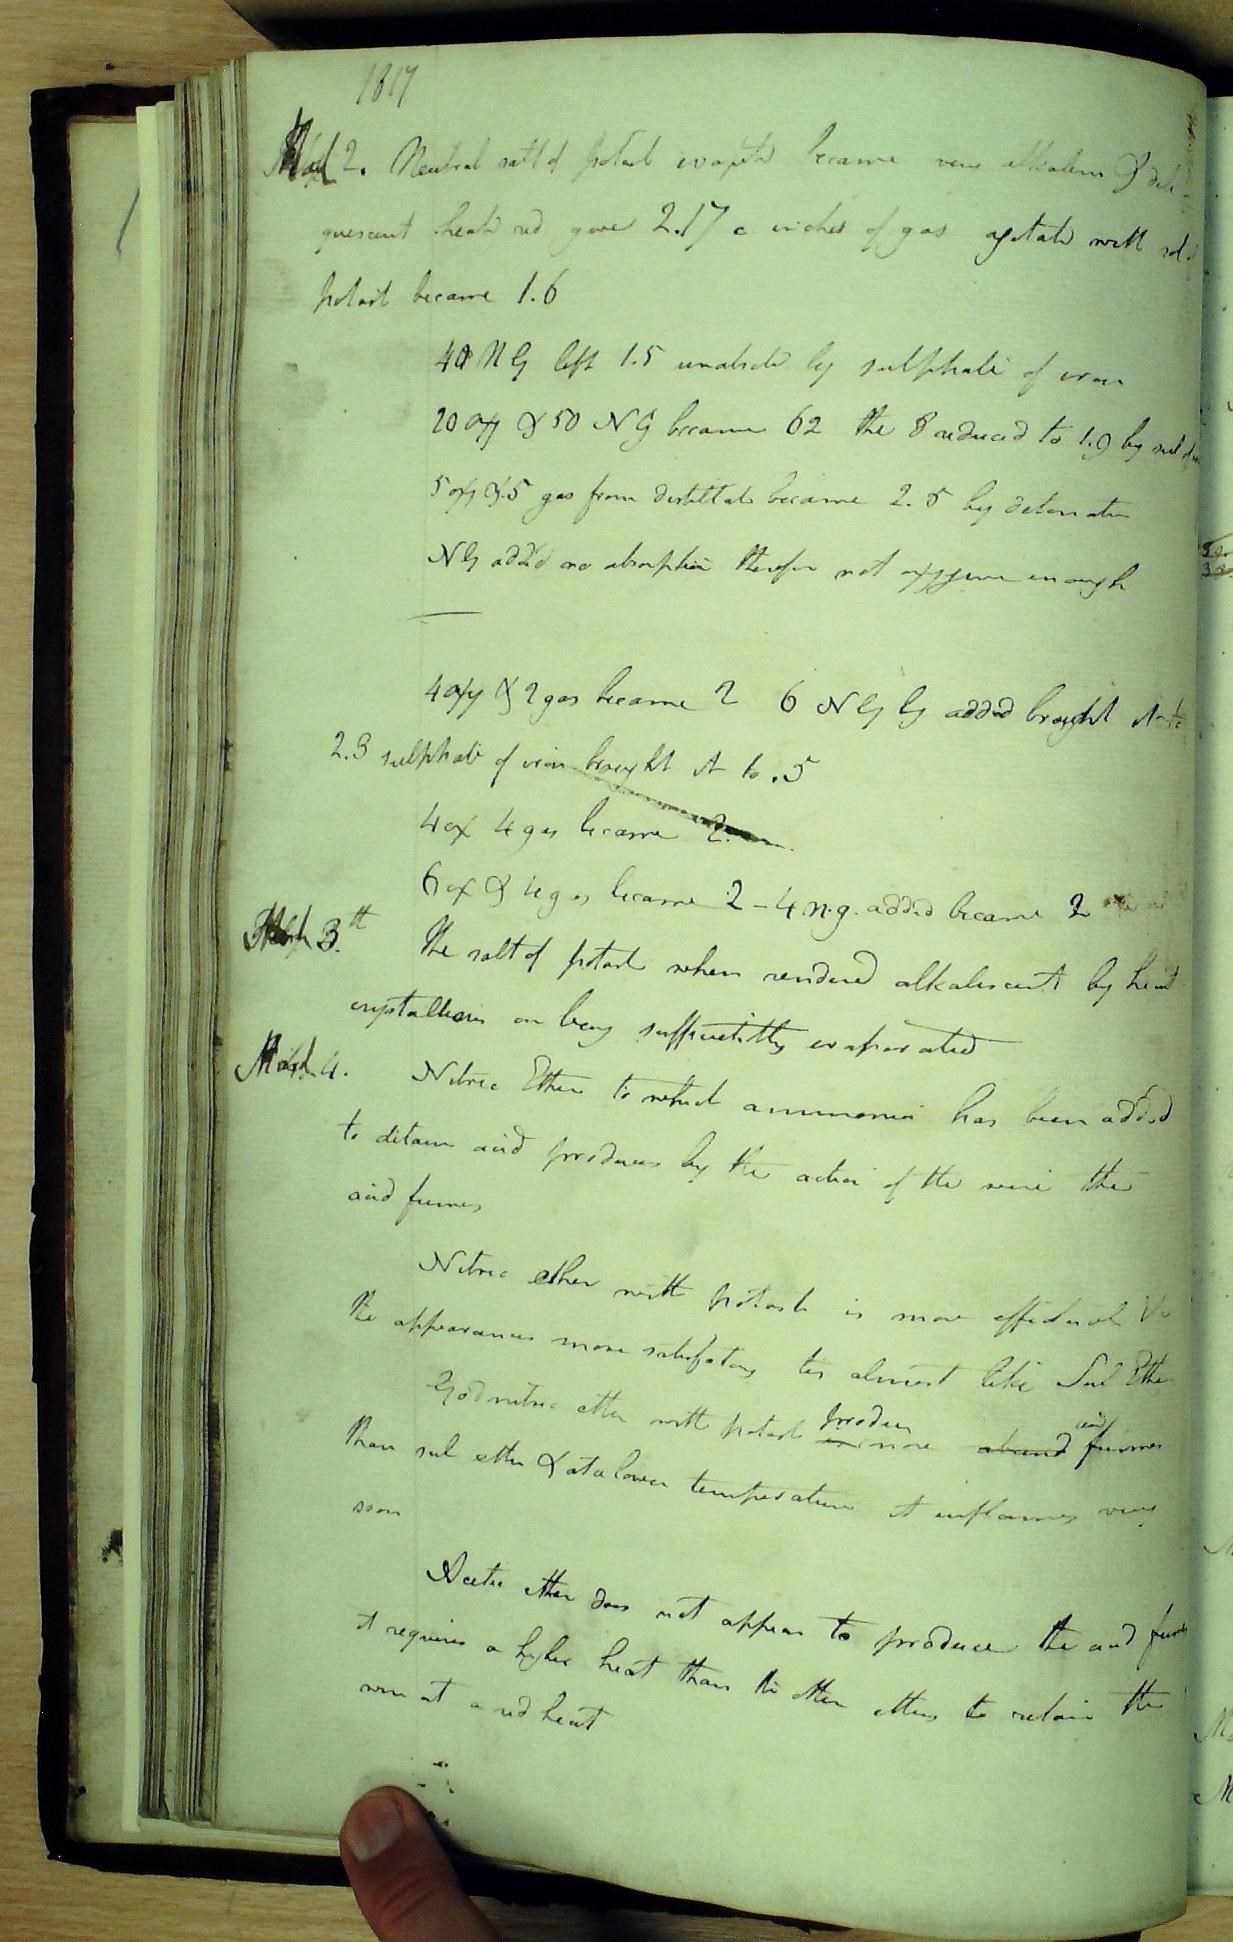 1817
March 2. Neutral salt of potash evapd became very alkaline & deli
quescent heated red gave 2.17 c inches of gas agitated with sol
potash became 1.6
40 N G left 1.5 unabsd by sulphate of iron
20 oxy & 50 N G became 62 the 8 reduced to 1.9 by sul
5 oxy & .5 gas from distillate became 2.5 by detonation
N G added no absorption therefor not oxygene enough
4 oxy & 2 gas became 2 6 N G added brought it to
2.3 sulphate of iron brought it to .5
4 ox 4 gas became 2.
6 ox & 4 gas became 2 - 4 n.g. added became 2
March 3.th The salt of potash when rendered alkalescent by heat
crystallizes on being sufficiently evaporated
March 4. Nitric Ether to which ammonia has been added
to detain acid produces by the action of the wire the
acid fumes
Nitric ether with potash is more effectual &
the appearances more satisfactory tis almost like Sul Ether
Good nitric ether with potash produces more abund acid fumes
than sul ether & at a lower temperature it inflames very
soon
Acetic ether does not appear to produce the acid fumes
it requires a higher heat than the other ethers to retain the
wire at a red heat